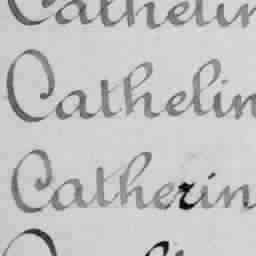 Cathelin
Cathelin
Catherin